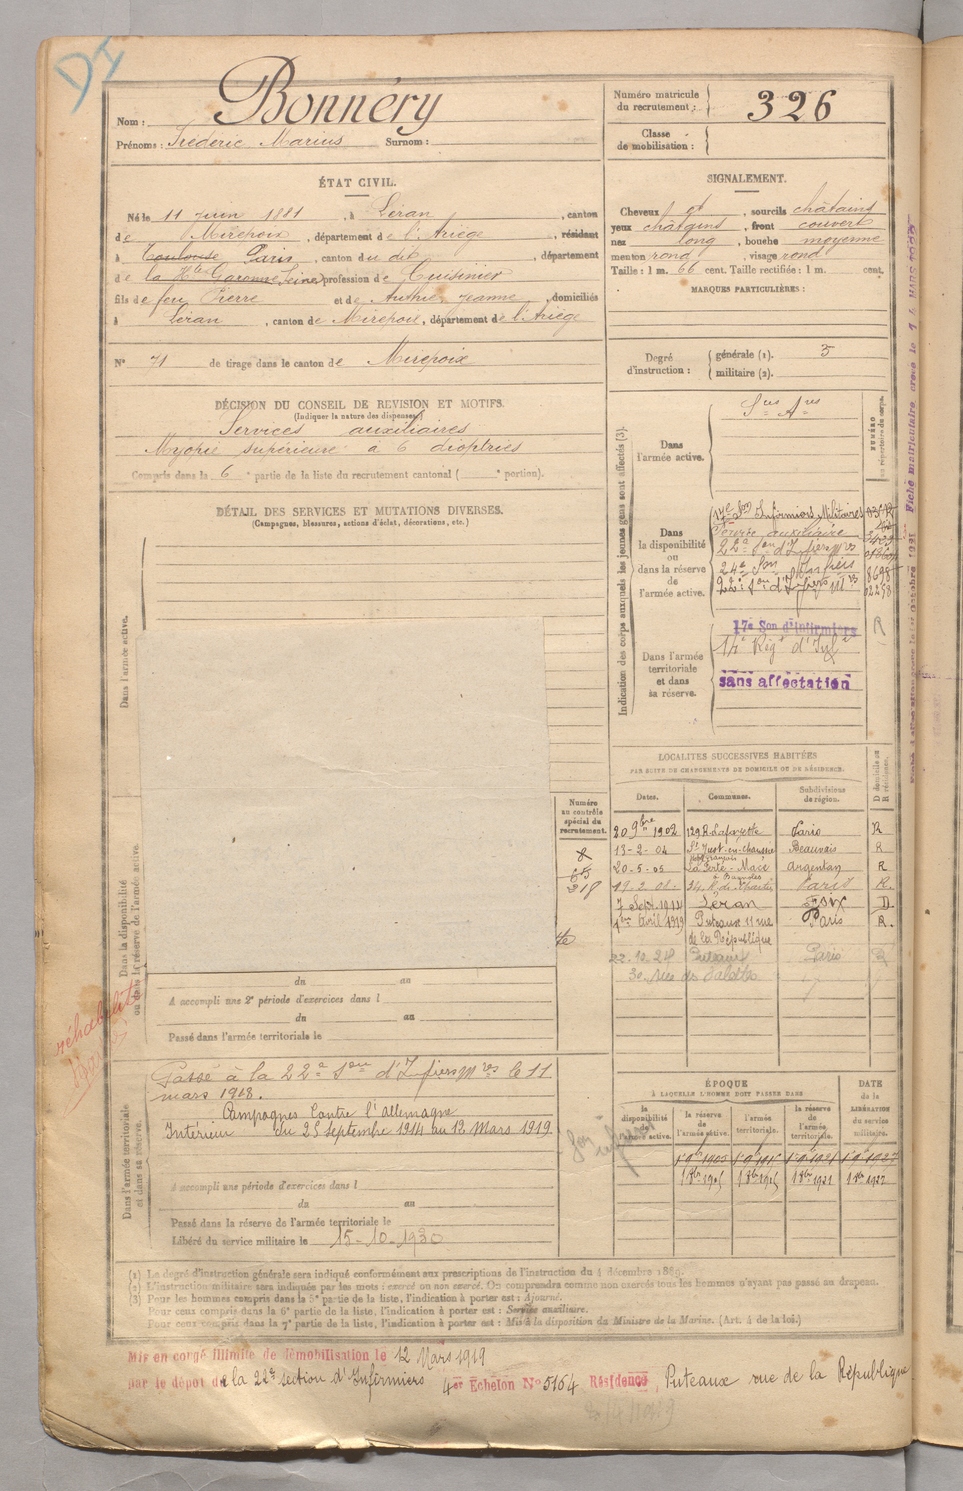 D I
Nom : Bonnéry
Prénoms : Frédéric Marius Surnom :
Numéro matricule du recrutement : 326
Classe de mobilisation :
ÉTAT CIVIL.
Né le 11 juin 1881, à Léran, canton
de Mirepoix, département de l'Ariège, résidant
à Toulouse Paris, canton du dit, département
de la Hte Garonne Seine, profession de Cuisinier
fils de feu Pierre et de Authié Jeanne, domiciliés
à Léran, canton de Mirepoix, département de l'Ariège
N° 71 de tirage dans le canton de Mirepoix
SIGNALEMENT.
Cheveux et sourcils châtains
yeux châtains, front couvert
nez long, bouche moyenne
menton rond, visage rond
Taille : 1 m. 66 cent. Taille rectifiée : 1 m. cent.
MARQUES PARTICULIÈRES :
Degré d'instruction : générale (1). 3
militaire (2).
DÉCISION DU CONSEIL DE REVISION ET MOTIFS.
(Indiquer la nature des dispenses.)
Services auxiliaires
Myopie supérieure à 6 dioptries
Compris dans la 6e partie de la liste du recrutement cantonal ( e portion).
DÉTAIL DES SERVICES ET MUTATIONS DIVERSES.
(Campagnes, blessures, actions d'éclat, décorations, etc.)
Dans l'armée active.
Dans la disponibilité ou dans la réserve de l'armée active.
réhabilité
Indication des corps auxquels les jeunes gens sont affectés (3).
NUMÉRO au répertoire du corps.
Dans l'armée active.
Ses Ares
Dans la disponibilité ou dans la réserve de l'armée active.
17e Son Infirmiers Militaires
Service auxiliaire
22e Son d'Infiers Mres
24e Son Infiers
22e Son d'Infiers Mres
8698
02258
Dans l'armée territoriale et dans sa réserve.
17e Son d'infirmiers R
14e Régt d'Infie
sans affectation
LOCALITÉS SUCCESSIVES HABITÉES
PAR SUITE DE CHANGEMENTS DE DOMICILE OU DE RÉSIDENCE.
Dates. Communes. Subdivisions de région. D domicile ou R résidence.
20 9bre 1902 129 R. Lafayette Paris R
13-2-04 St Just-en-chaussée Beauvais R
20-5-05 La Ferté-Macé Argentan R
à Bagnoles
19-2-08 Paris R.
7 Sept. 1914 Léran Foix D
1er Avril 1919 Puteaux 11 rue de la République Paris R.
22-10-28 Puteaux Paris R
Numéro au contrôle spécial du recrutement.
8
65
318
du au
A accompli une 2e période d'exercices dans l
du au
Passé dans l'armée territoriale le
Dans l'armée territoriale et dans sa réserve.
Passé à la 22e Son d'Infiers Mres le 11
mars 1918.
Campagnes Contre l'Allemagne
Intérieur du 25 septembre 1914 au 12 Mars 1919
A accompli une période d'exercices dans l
du au
Passé dans la réserve de l'armée territoriale le
Libéré du service militaire le 15-10-1930
ÉPOQUE
À LAQUELLE L'HOMME DOIT PASSER DANS
DATE de la LIBÉRATION du service militaire.
la disponibilité de l'armée active. la réserve de l'armée active. l'armée territoriale. la réserve de l'armée territoriale.
1 9b 1905 1 9b 1915 1 9b 1921 1 9b 1927
1 8bre 1905 1 8bre 1915 1 8bre 1921 1 8bre 1927
(1) Le degré d'instruction générale sera indiqué conformément aux prescriptions de l'instruction du 4 décembre 1889.
(2) L'instruction militaire sera indiquée par les mots : exercé ou non exercé. On comprendra comme non exercés tous les hommes n'ayant pas passé au drapeau.
(3) Pour les hommes compris dans la 5e partie de la liste, l'indication à porter est : Ajourné.
Pour ceux compris dans la 6e partie de la liste, l'indication à porter est : Service auxiliaire.
Pour ceux compris dans la 7e partie de la liste, l'indication à porter est : Mis à la disposition du Ministre de la Marine. (Art. 4 de la loi.)
Mis en congé illimité de démobilisation le 12 Mars 1919
par le dépôt de la 22e section d'Infirmiers 4er Echelon No 5164 Résidence, Puteaux rue de la République